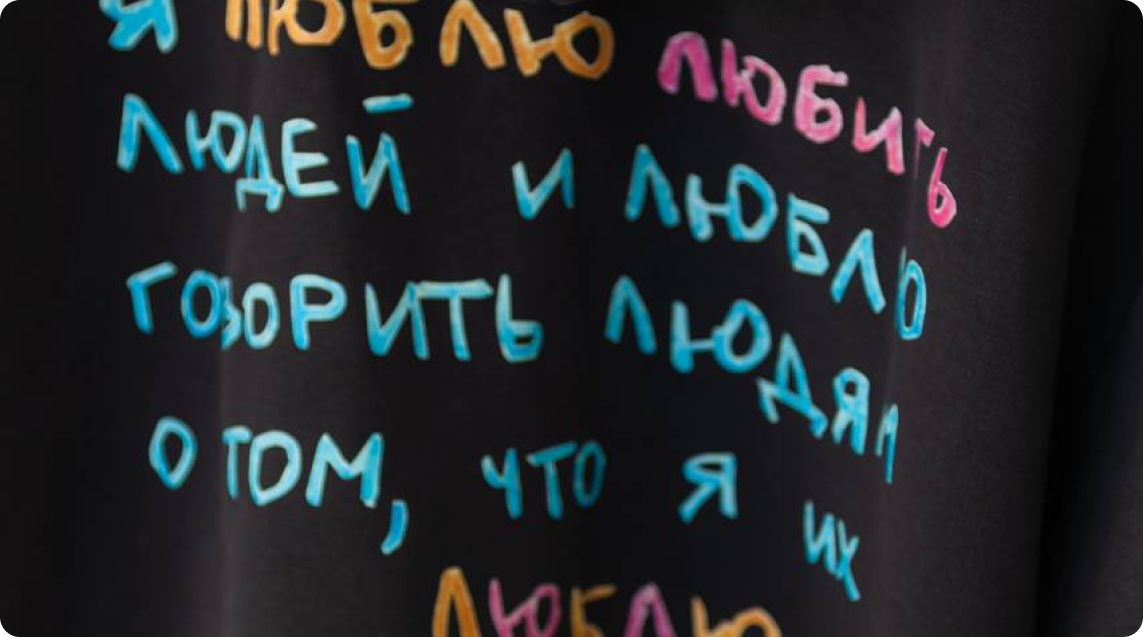 Я ЛЮБЛЮ ЛЮБИТЬ
ЛЮДЕЙ И ЛЮБЛЮ
ГОВОРИТЬ ЛЮДЯМ
О ТОМ, ЧТО Я ИХ
ЛЮБЛЮ